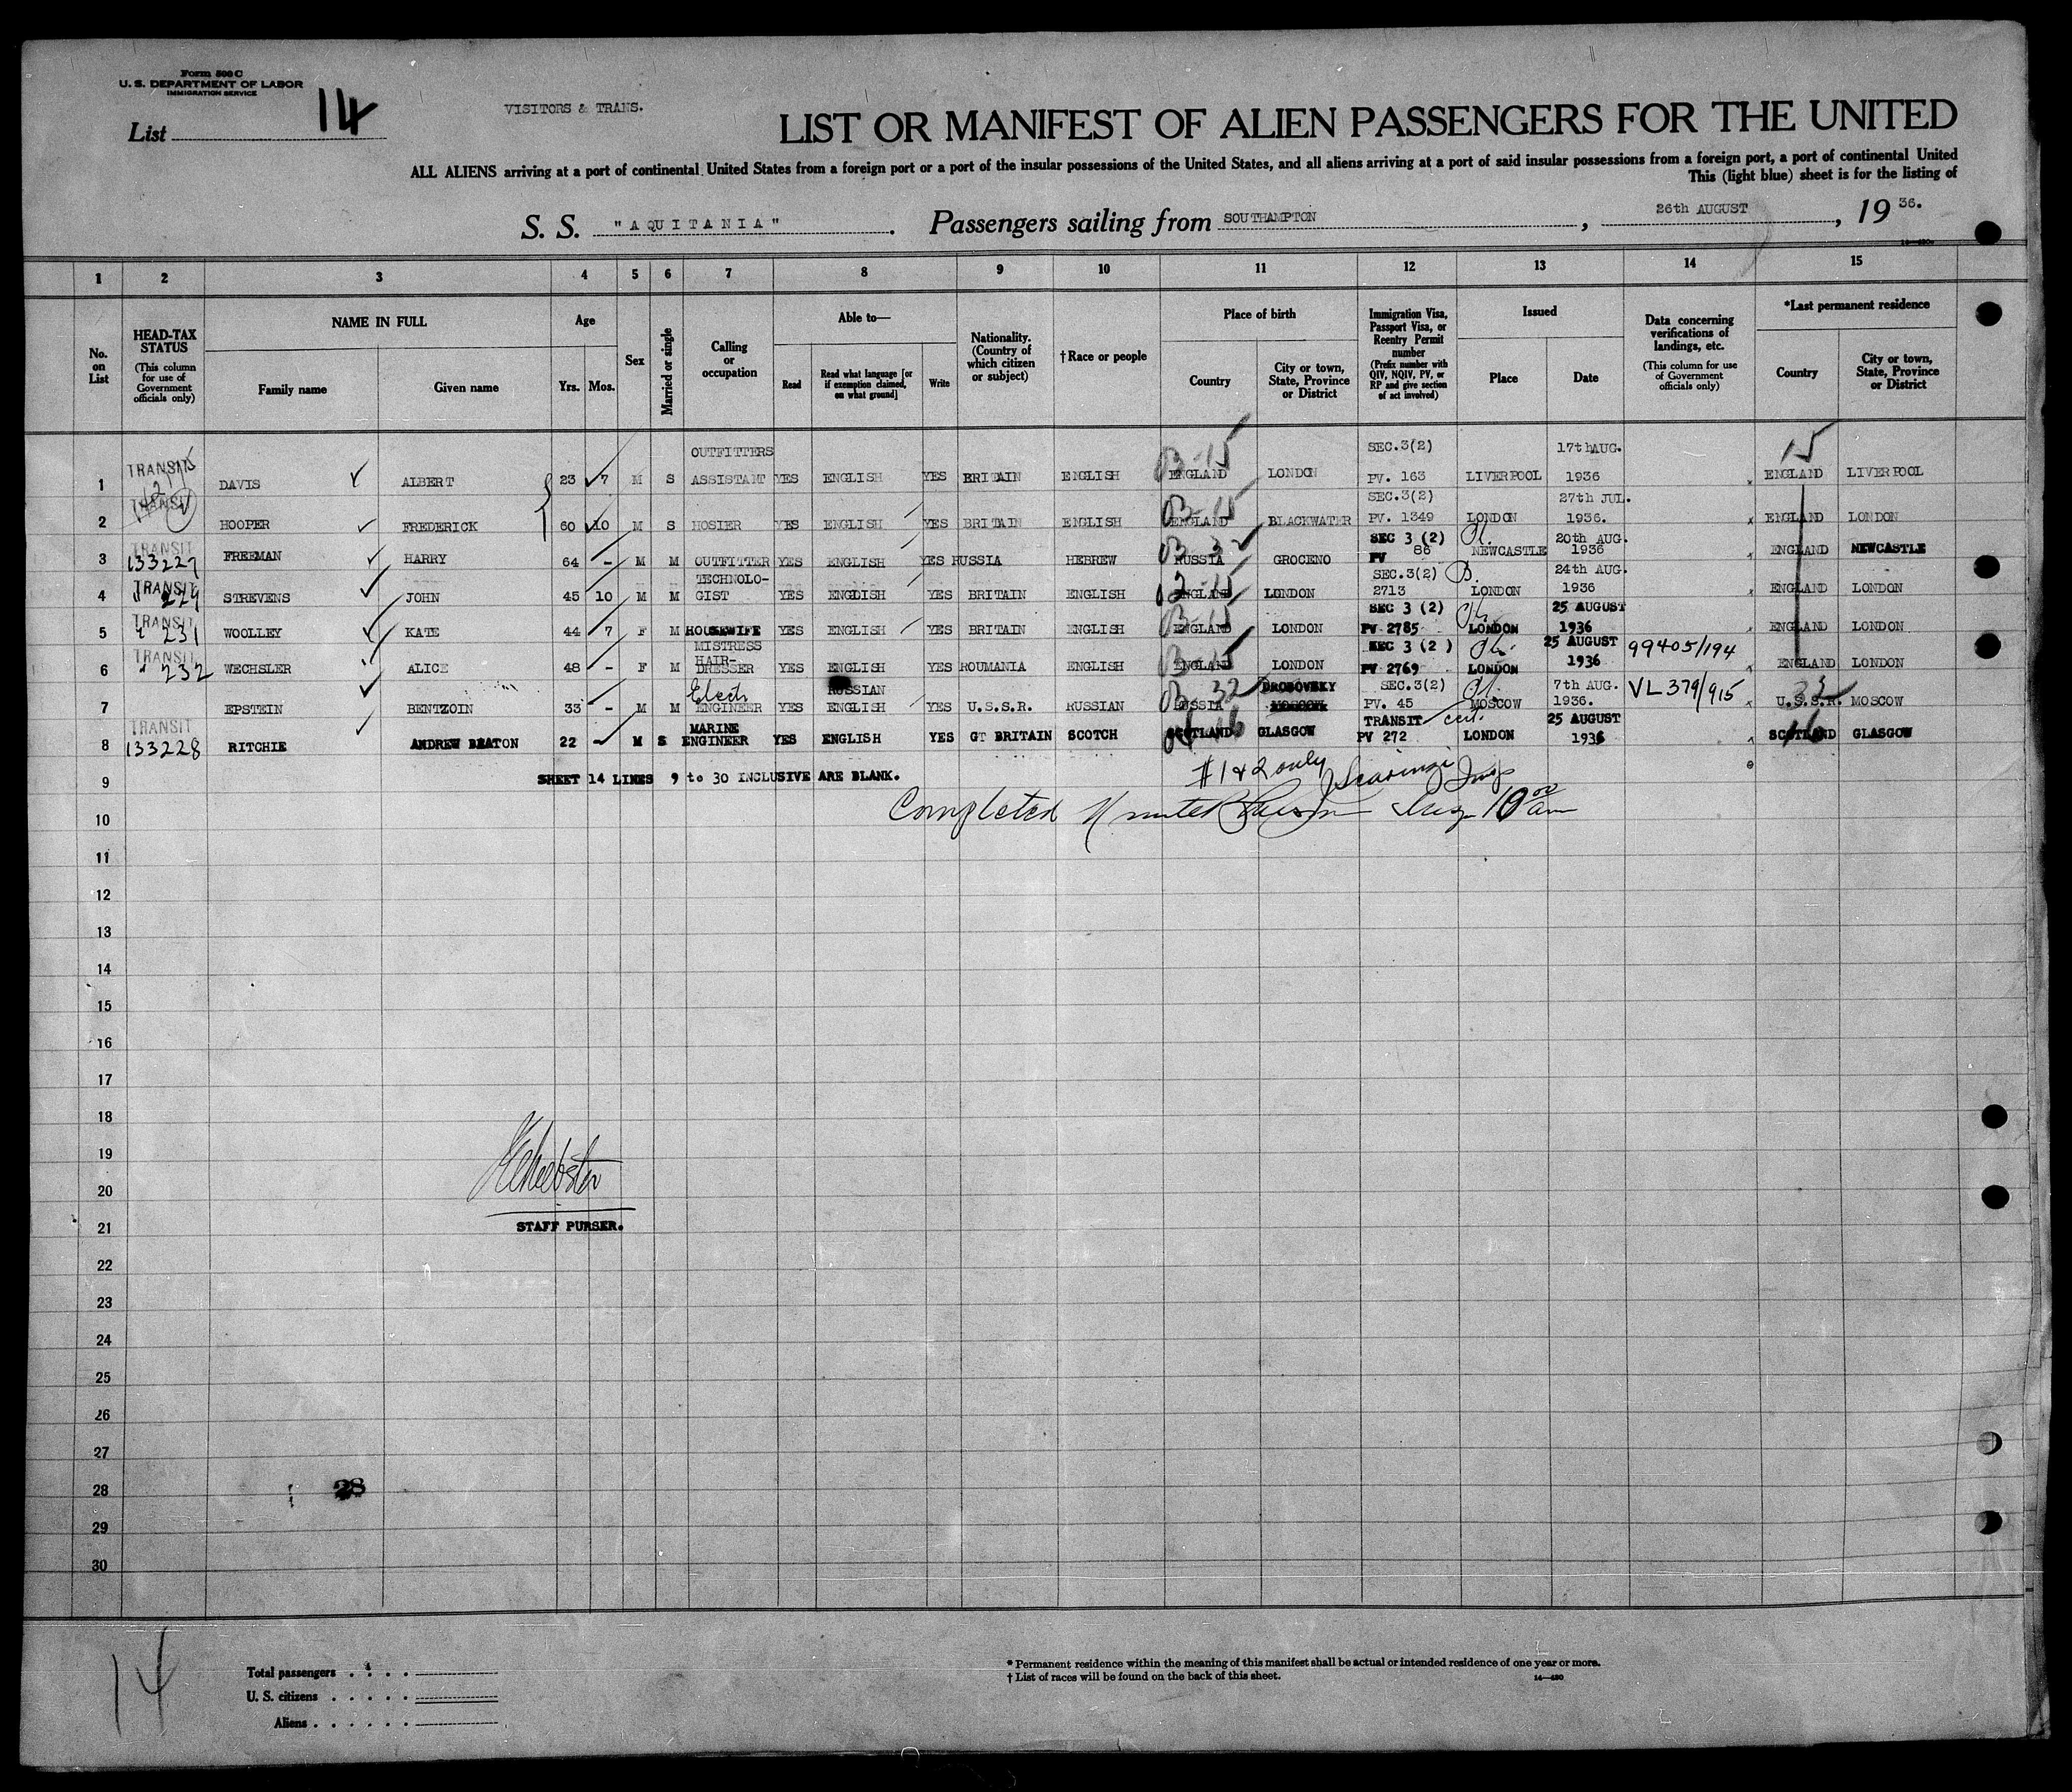 Form 500 C
U. S. DEPARTMENT OF LABOR
IMMIGRATION SERVICE
List 14
VISITORS & TRANS.
LIST OR MANIFEST OF ALIEN PASSENGERS FOR THE UNITED
ALL ALIENS arriving at a port of continental United States from a foreign port or a port of the insular possessions of the United States, and all aliens arriving at a port of said insular possessions from a foreign port, a port of continental United
This (light blue) sheet is for the listing of
S. S. "AQUITANIA" . Passengers sailing from SOUTHAMPTON , 26th AUGUST , 19 36.
1 2 3 4 5 6 7 8 9 10 11 12 13 14 15
No. on List
HEAD-TAX STATUS (This column for use of Government officials only)
NAME IN FULL Family name Given name
Age Yrs. Mos.
Sex
Married or single
Calling or occupation
Able to— Read Read what language [or if exemption claimed, on what ground] Write
Nationality. (Country of which citizen or subject)
†Race or people
Place of birth Country City or town, State, Province or District
Immigration Visa, Passport Visa, or Reentry Permit number (Prefix number with QIV, NQIV, PV, or RP and give section of act involved)
Issued Place Date
Data concerning verifications of landings, etc. (This column for use of Government officials only)
*Last permanent residence Country City or town, State, Province or District
OUTFITTERS SEC.3(2) 17th AUG. 15
1 TRANSIT DAVIS ALBERT 23 7 M S ASSISTANT YES ENGLISH YES BRITAIN ENGLISH 03-15 ENGLAND LONDON PV. 163 LIVERPOOL 1936 ENGLAND LIVERPOOL
TRANSIT SEC.3(2) 27th JUL.
2 HOOPER FREDERICK 60 10 M S HOSIER YES ENGLISH YES BRITAIN ENGLISH 03-15 ENGLAND BLACKWATER PV. 1349 LONDON 1936. ENGLAND LONDON
TRANSIT SEC 3 (2) 20th AUG.
3 133227 FREEMAN HARRY 64 - M M OUTFITTER YES ENGLISH YES RUSSIA HEBREW 03-32 RUSSIA GROCENO PV 86 NEWCASTLE 1936 ENGLAND NEWCASTLE
TRANSIT TECHNOLO- SEC.3(2) 24th AUG.
4 229 STREVENS JOHN 45 10 M M GIST YES ENGLISH YES BRITAIN ENGLISH 15 ENGLAND LONDON 2713 LONDON 1936 ENGLAND LONDON
TRANSIT SEC 3 (2) 25 AUGUST
5 " 231 WOOLLEY KATE 44 7 F M HOUSEWIFE YES ENGLISH YES BRITAIN ENGLISH 03-15 ENGLAND LONDON PV 2785 LONDON 1936 ENGLAND LONDON
TRANSIT MISTRESS HAIR- SEC 3 (2) 25 AUGUST
6 " 232 WECHSLER ALICE 48 - F M DRESSER YES ENGLISH YES ROUMANIA ENGLISH 03-15 ENGLAND LONDON PV 2769 LONDON 1936 99405/194 ENGLAND LONDON
Elect. RUSSIAN DROBOVSKY SEC.3(2) 7th AUG. VL 379/915
7 EPSTEIN BENTZOIN 33 - M M ENGINEER YES ENGLISH YES U.S.S.R. RUSSIAN 03-32 RUSSIA MOSCOW PV. 45 MOSCOW 1936. 32 U.S.S.R. MOSCOW
TRANSIT MARINE TRANSIT cert. 25 AUGUST
8 133228 RITCHIE ANDREW BEATON 22 - M S ENGINEER YES ENGLISH YES GT BRITAIN SCOTCH 16 SCOTLAND GLASGOW PV 272 LONDON 1936 16 SCOTLAND GLASGOW
9 SHEET 14 LINES 9 to 30 INCLUSIVE ARE BLANK. #1 & 2 only Insp
10 Completed Insp 10 00 am
11
12
13
14
15
16
17
18
19
20
21 STAFF PURSER.
22
23
24
25
26
27
28 28
29
30
14
Total passengers
U. S. citizens
Aliens
* Permanent residence within the meaning of this manifest shall be actual or intended residence of one year or more.
† List of races will be found on the back of this sheet.
14—480